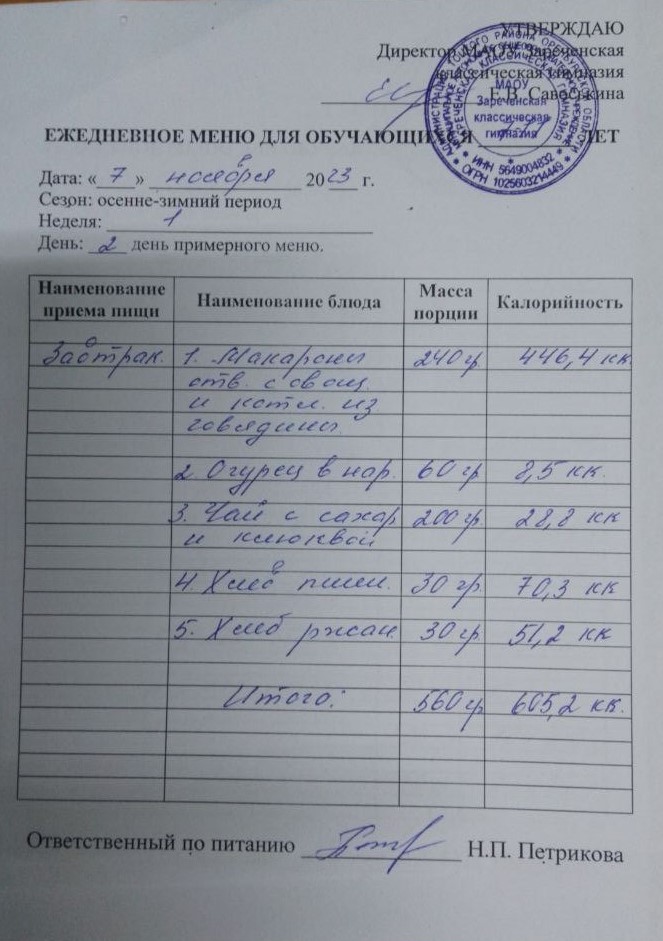 УТВЕРЖДАЮ
Директор МАОУ Зареченская
классическая гимназия
Е.В. Савоськина
МАОУ
Зареченская
классическая
гимназия
ИНН 5649004832
ОГРН 1025603214449
ЕЖЕДНЕВНОЕ МЕНЮ ДЛЯ ОБУЧАЮЩИХСЯ ЛЕТ
Дата: «7» ноября 2023 г.
Сезон: осенне-зимний период
Неделя: 1
День: 2 день примерного меню.
Наименование приема пищи Наименование блюда Масса порции Калорийность
Завтрак. 1. Макароны 240 гр 446,4 кк
отв. с овощ.
и котл. из
говядины
2. Огурец в нар. 60 гр 8,5 кк.
3. Чай с сахар 200 гр 28,8 кк
и клюквой
4. Хлеб пшен. 30 гр. 70,3 кк
5. Хлеб ржан. 30 гр. 51,2 кк
Итого: 560 гр 605,2 кк.
Ответственный по питанию Н.П. Петрикова